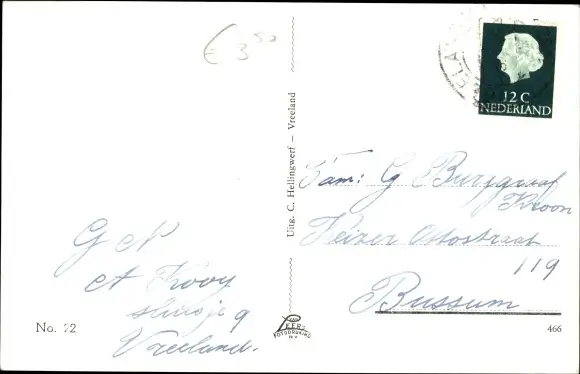 € 3⁵⁰
12 C
NEDERLAND
Uitg. C. Hellingwerf – Vreeland
Fam: G Burggraaf
Kroon
Keizer Ottostraat
119
Bussum
G N
A Kooy
sluisje 9
Vreeland.
No. 22
LEERS
FOTODRUKIND
N.V.
466